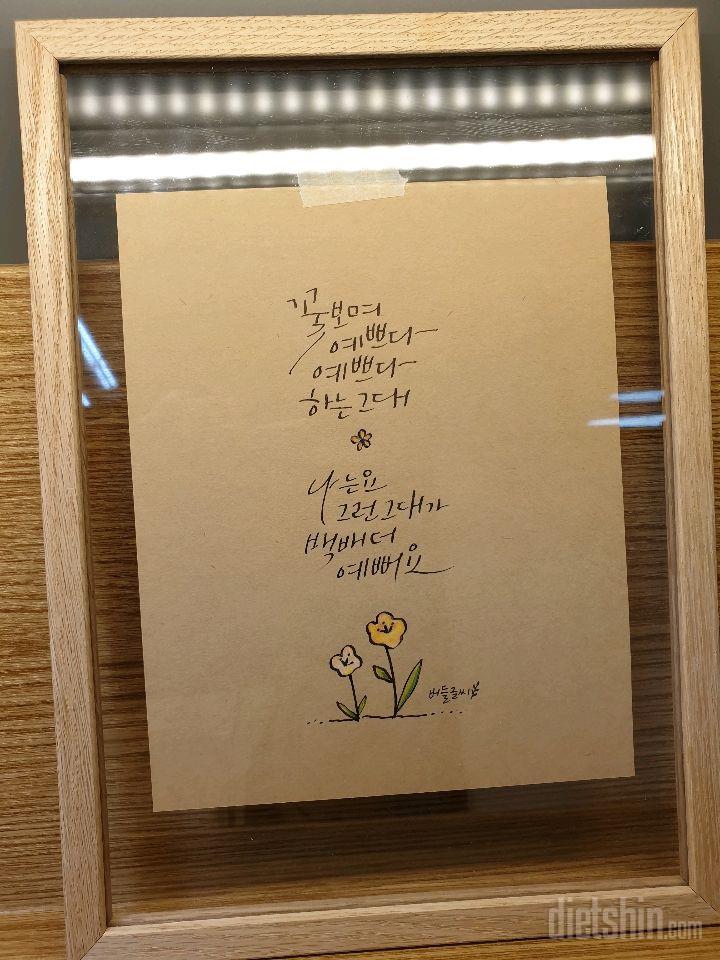 꽃보며
예쁘다
예쁘다
하는 그대
나는요
그런 그대가
백배 더
예뻐요
버들글씨
dietshin.com